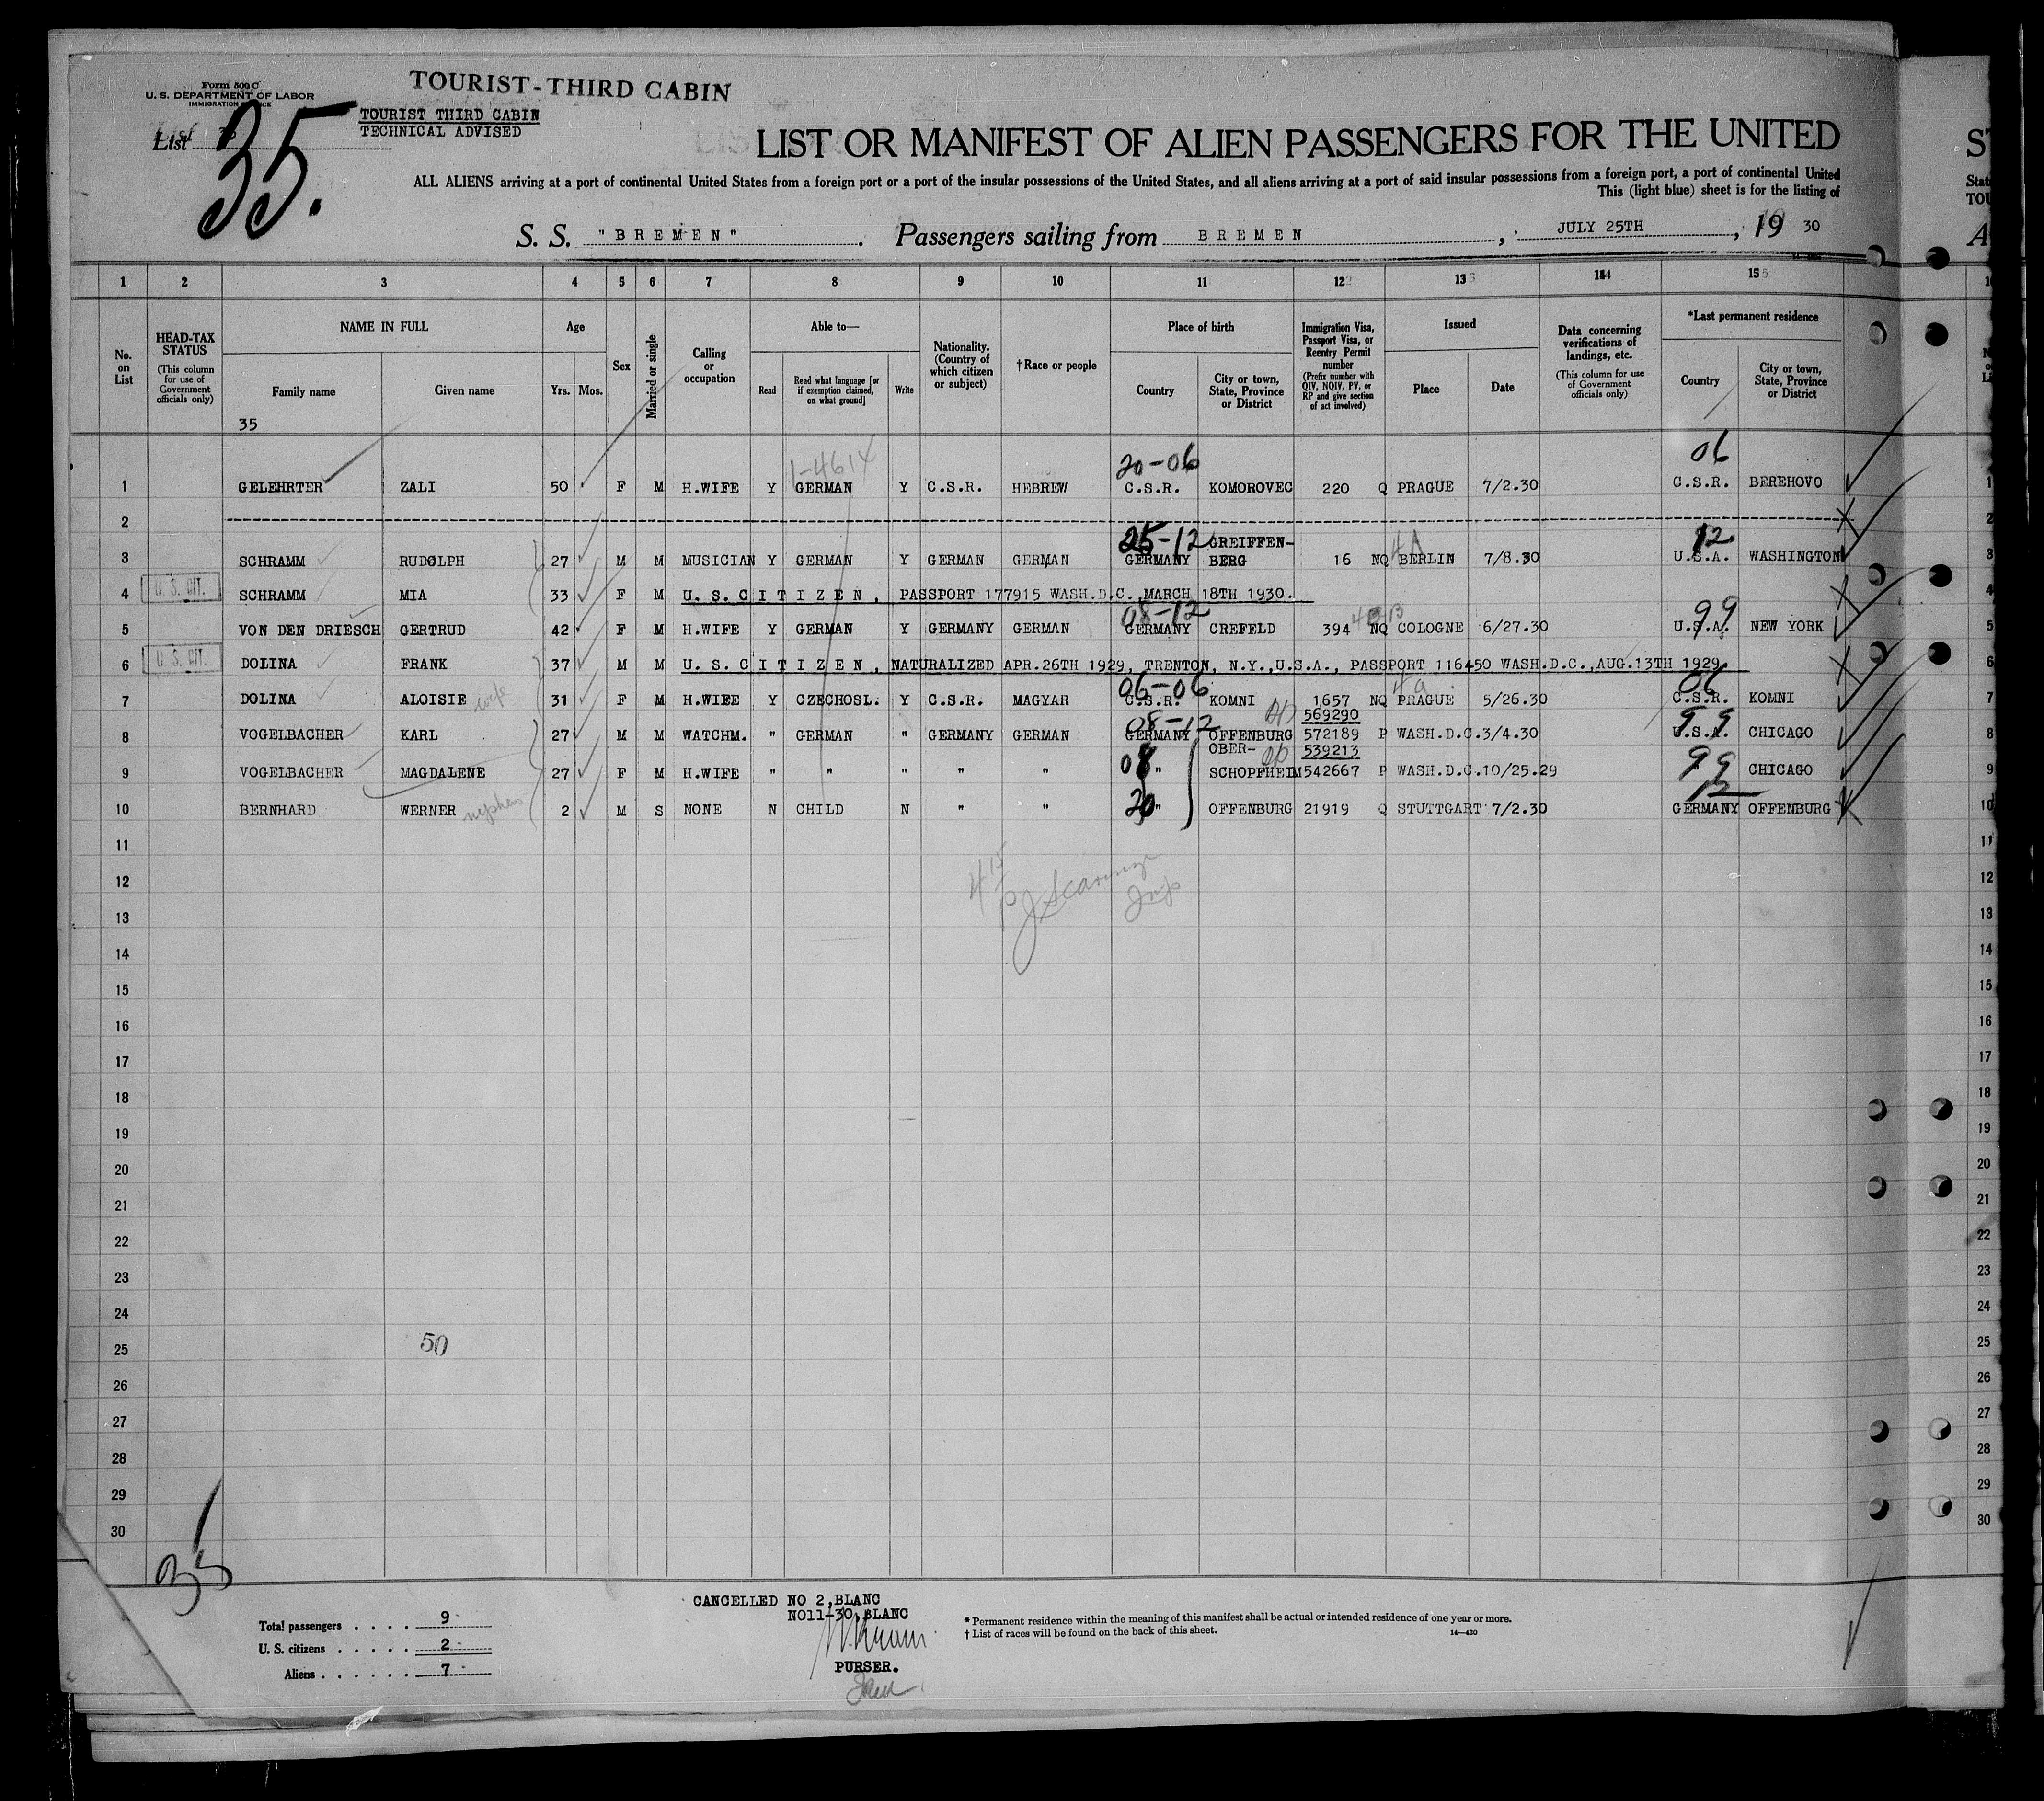 Form 500 C
U. S. DEPARTMENT OF LABOR
IMMIGRATION
TOURIST-THIRD CABIN
TOURIST THIRD CABIN
TECHNICAL ADVISED
List
35.
LIST OR MANIFEST OF ALIEN PASSENGERS FOR THE UNITED
ST
ALL ALIENS arriving at a port of continental United States from a foreign port or a port of the insular possessions of the United States, and all aliens arriving at a port of said insular possessions from a foreign port, a port of continental United
This (light blue) sheet is for the listing of
S. S. "BREMEN". Passengers sailing from BREMEN, JULY 25TH, 19 30
1 2 3 4 5 6 7 8 9 10 11 12 13 14 15
No. on List
HEAD-TAX STATUS (This column for use of Government officials only)
NAME IN FULL
Family name Given name
35
Age
Yrs. Mos.
Sex
Married or single
Calling or occupation
Able to—
Read Read what language [or if exemption claimed, on what ground] Write
Nationality. (Country of which citizen or subject)
†Race or people
Place of birth
Country City or town, State, Province or District
Immigration Visa, Passport Visa, or Reentry Permit number (Prefix number with QIV, NQIV, PV, or RP and give section of act involved)
Issued
Place Date
Data concerning verifications of landings, etc. (This column for use of Government officials only)
*Last permanent residence
Country City or town, State, Province or District
1-4614 20-06 06
1 GELEHRTER ZALI 50 F M H.WIFE Y GERMAN Y C.S.R. HEBREW C.S.R. KOMOROVEC 220 Q PRAGUE 7/2.30 C.S.R. BEREHOVO 1
2 2
25-12 4A 12
3 SCHRAMM RUDOLPH 27 M M MUSICIAN Y GERMAN Y GERMAN GERMAN GERMANY GREIFFEN-BERG 16 NQ BERLIN 7/8.30 U.S.A. WASHINGTON 3
4 U. S. CIT. SCHRAMM MIA 33 F M U. S. C I T I Z E N , PASSPORT 177915 WASH.D.C. MARCH 18TH 1930. 4
08-12 99
5 VON DEN DRIESCH GERTRUD 42 F M H.WIFE Y GERMAN Y GERMANY GERMAN GERMANY CREFELD 394 NQ COLOGNE 6/27.30 U.S.A. NEW YORK 5
6 U. S. CIT. DOLINA FRANK 37 M M U. S. C I T I Z E N , NATURALIZED APR.26TH 1929, TRENTON, N.Y.,U.S.A., PASSPORT 116450 WASH.D.C.,AUG.13TH 1929. 6
06-06 4a 06
7 DOLINA ALOISIE wife 31 F M H.WIFE Y CZECHOSL. Y C.S.R. MAGYAR C.S.R. KOMNI 1657 NQ PRAGUE 5/26.30 C.S.R. KOMNI 7
08-12 569290 99
8 VOGELBACHER KARL 27 M M WATCHM. " GERMAN " GERMANY GERMAN GERMANY OFFENBURG 572189 P WASH.D.C.3/4.30 U.S.A. CHICAGO 8
OBER- 539213
9 VOGELBACHER MAGDALENE 27 F M H.WIFE " " " " " 08 " SCHOPFHEIM 542667 P WASH.D.C.10/25.29 99 CHICAGO 9
12
10 BERNHARD WERNER nephew 2 M S NONE N CHILD N " " 20 " OFFENBURG 21919 Q STUTTGART 7/2.30 GERMANY OFFENBURG 10
11 11
12 12
13 13
14 14
15 15
16 16
17 17
18 18
19 19
20 20
21 21
22 22
23 23
24 24
25 50 25
26 26
27 27
28 28
29 29
30 30
35
Total passengers . . . . 9
U. S. citizens . . . . . 2
Aliens . . . . . . 7
CANCELLED NO 2,BLANC
NO11-30,BLANC
PURSER.
* Permanent residence within the meaning of this manifest shall be actual or intended residence of one year or more.
† List of races will be found on the back of this sheet.
14—430